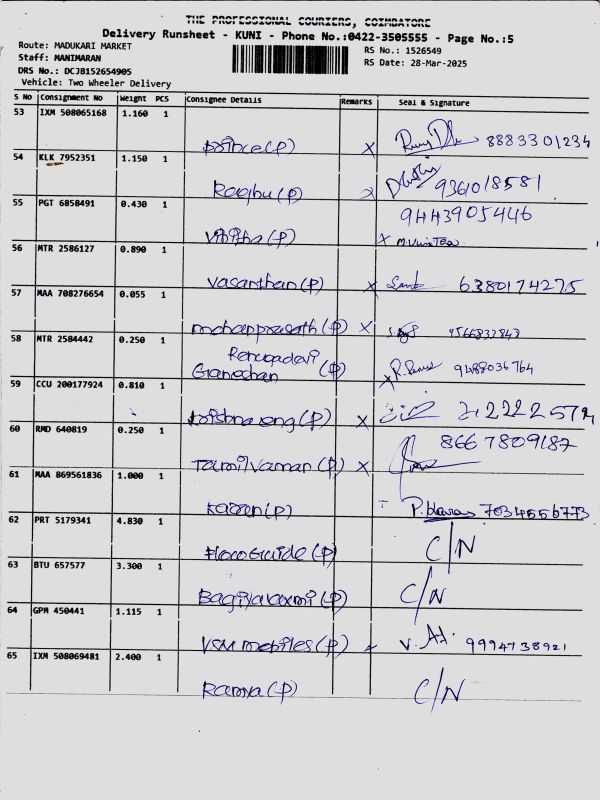 THE PROFESSIONAL COURIERS, COIMBATORE
Delivery Runsheet - KUNI - Phone No.:0422-3505555 - Page No.:5
Route: MADUKARI MARKET
RS No.: 1526549
Staff: MANIMARAN
RS Date: 28-Mar-2025
DRS No.: DCJB152654905
Vehicle: Two Wheeler Delivery
S No Consignment No Weight PCS Consignee Details Remarks Seal & Signature
53 IXM 508065168 1.160 1
Prince(P) x 8883301234
54 KLK 7952351 1.150 1
Raghu(P) x 9361018581
55 PGT 6858491 0.430 1 9443905446
(P) x
56 MTR 2586127 0.890 1
Vasanthan(P) x 6380174275
57 MAA 708276654 0.055 1
mohanprasath(P) x 9566832843
58 MTR 2584442 0.250 1
Renugadevi
(P) x 9488036764
59 CCU 200177924 0.810 1
(P) x
60 RMD 640819 0.250 1 8667809187
Tamilvanan(P) x
61 MAA 869561836 1.000 1
(P)
62 PRT 5179341 4.830 1
(P) C/N
63 BTU 657577 3.300 1
Bagiyalaxmi(P) C/N
64 GPM 450441 1.115 1
VSM mobiles(P) 9994738921
65 IXM 508069481 2.400 1
Ramya(P) C/N